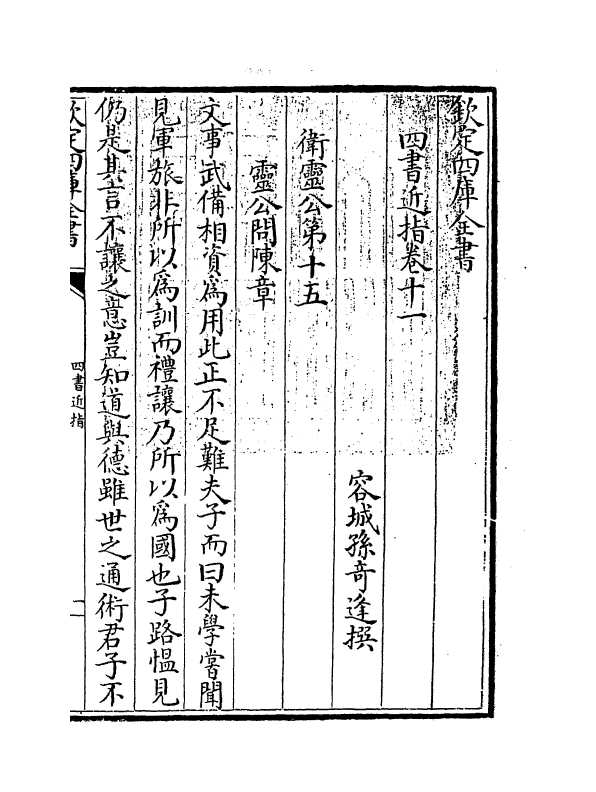 欽定四庫全書
四書近指卷十一
容城孫奇逢撰
衛靈公第十五
靈公問陳章
文事武備相資為用此正不足難夫子而曰未學嘗聞
見軍旅非所以為訓而禮讓乃所以為國也子路慍見
仍是其言不讓之意豈知道與德雖世之通術君子不
欽定四庫全書
四書近指